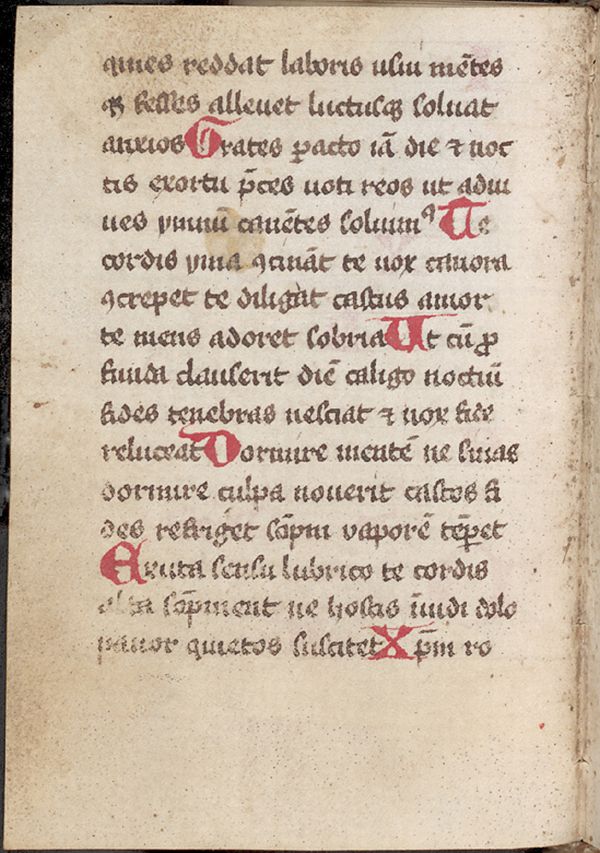 quies reddat laboris usui mētes
qʒ fesses allevet luctusqʒ solvat
anxios Grates ꝑacto iā die ⁊ noc
tis exortu p̄ces voti reos ut adiu
ves ymnū canētes solvimꝰ Te
cordis yma ꝯcināt te vox canora
ꝯcrepet te diligat castus amor
te mens adoret sobria Ut cū ꝓ
funda clauserit diē caligo noctiū
fides tenebras nesciat ⁊ nox fide
reluceat Dormire mentē ne sinas
dormire culpa noverit castos fi
des refriget sōpni vaporē tēꝑet
Exuta sensu lubrico te cordis
alta sōpment ne hostis īvidi dolo
pavor quietos suscitet Xp̄m ro